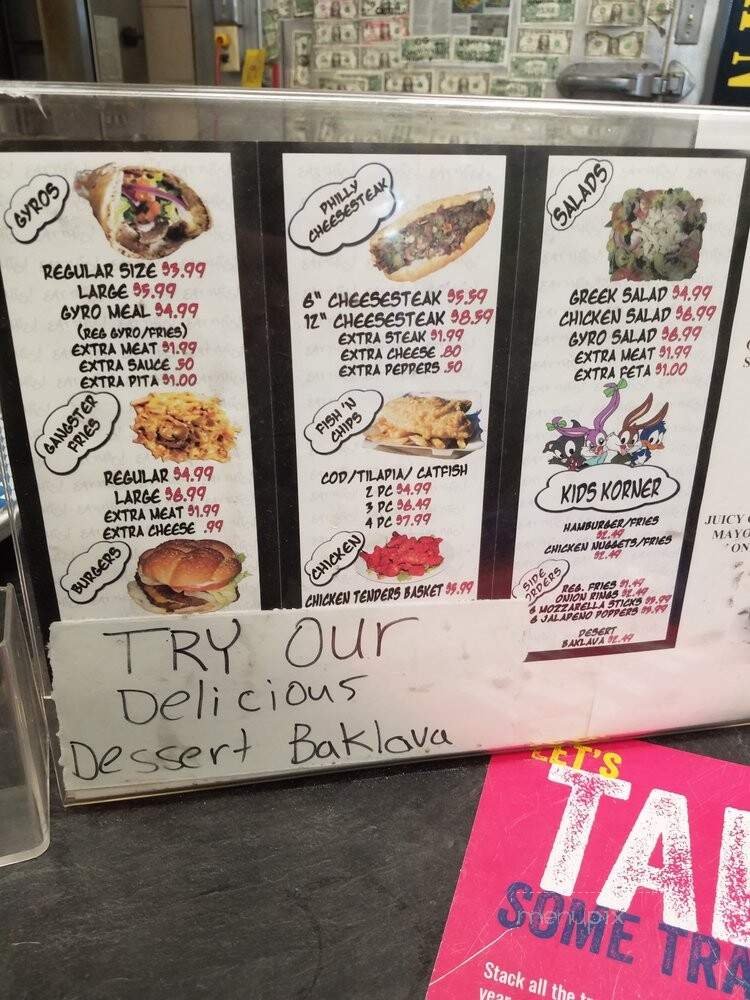 GYROS
REGULAR SIZE $3.99
LARGE $5.99
GYRO MEAL $4.99
(REG GYRO/FRIES)
EXTRA MEAT $1.99
EXTRA SAUCE .50
EXTRA PITA $1.00
GANGSTER
FRIES
REGULAR $4.99
LARGE $6.99
EXTRA MEAT $1.99
EXTRA CHEESE .99
BURGERS
PHILLY
CHEESESTEAK
6" CHEESESTEAK $5.59
12" CHEESESTEAK $8.59
EXTRA STEAK $1.99
EXTRA CHEESE .80
EXTRA PEPPERS .50
FISH 'N
CHIPS
COD/TILAPIA/ CATFISH
2 PC $4.99
3 PC $6.49
4 PC $7.99
CHICKEN
CHICKEN TENDERS BASKET $5.99
SALADS
GREEK SALAD $4.99
CHICKEN SALAD $6.99
GYRO SALAD $6.99
EXTRA MEAT $1.99
EXTRA FETA $1.00
KIDS KORNER
HAMBURGER/FRIES
$2.49
CHICKEN NUGGETS/FRIES
$2.49
SIDE
ORDERS
REG. FRIES $1.49
ONION RINGS $2.49
6 MOZZARELLA STICKS $3.99
6 JALAPENO POPPERS $3.99
DESERT
BAKLAVA $2.49
JUICY
MAYO
TRY Our
Delicious
Dessert Baklava
LET'S
SOME TRA
Stack all the
year
menupix